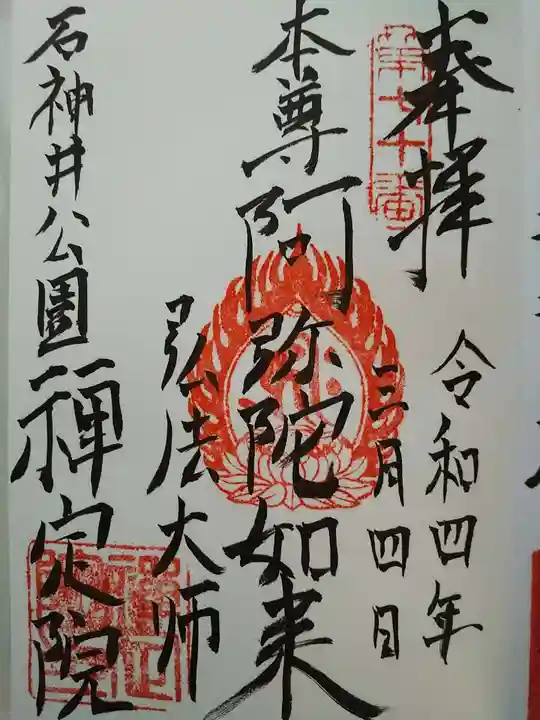 奉拝
第七十番
令和四年
三月四日
本尊阿弥陀如来
弘法大师
石神井公園禅定院